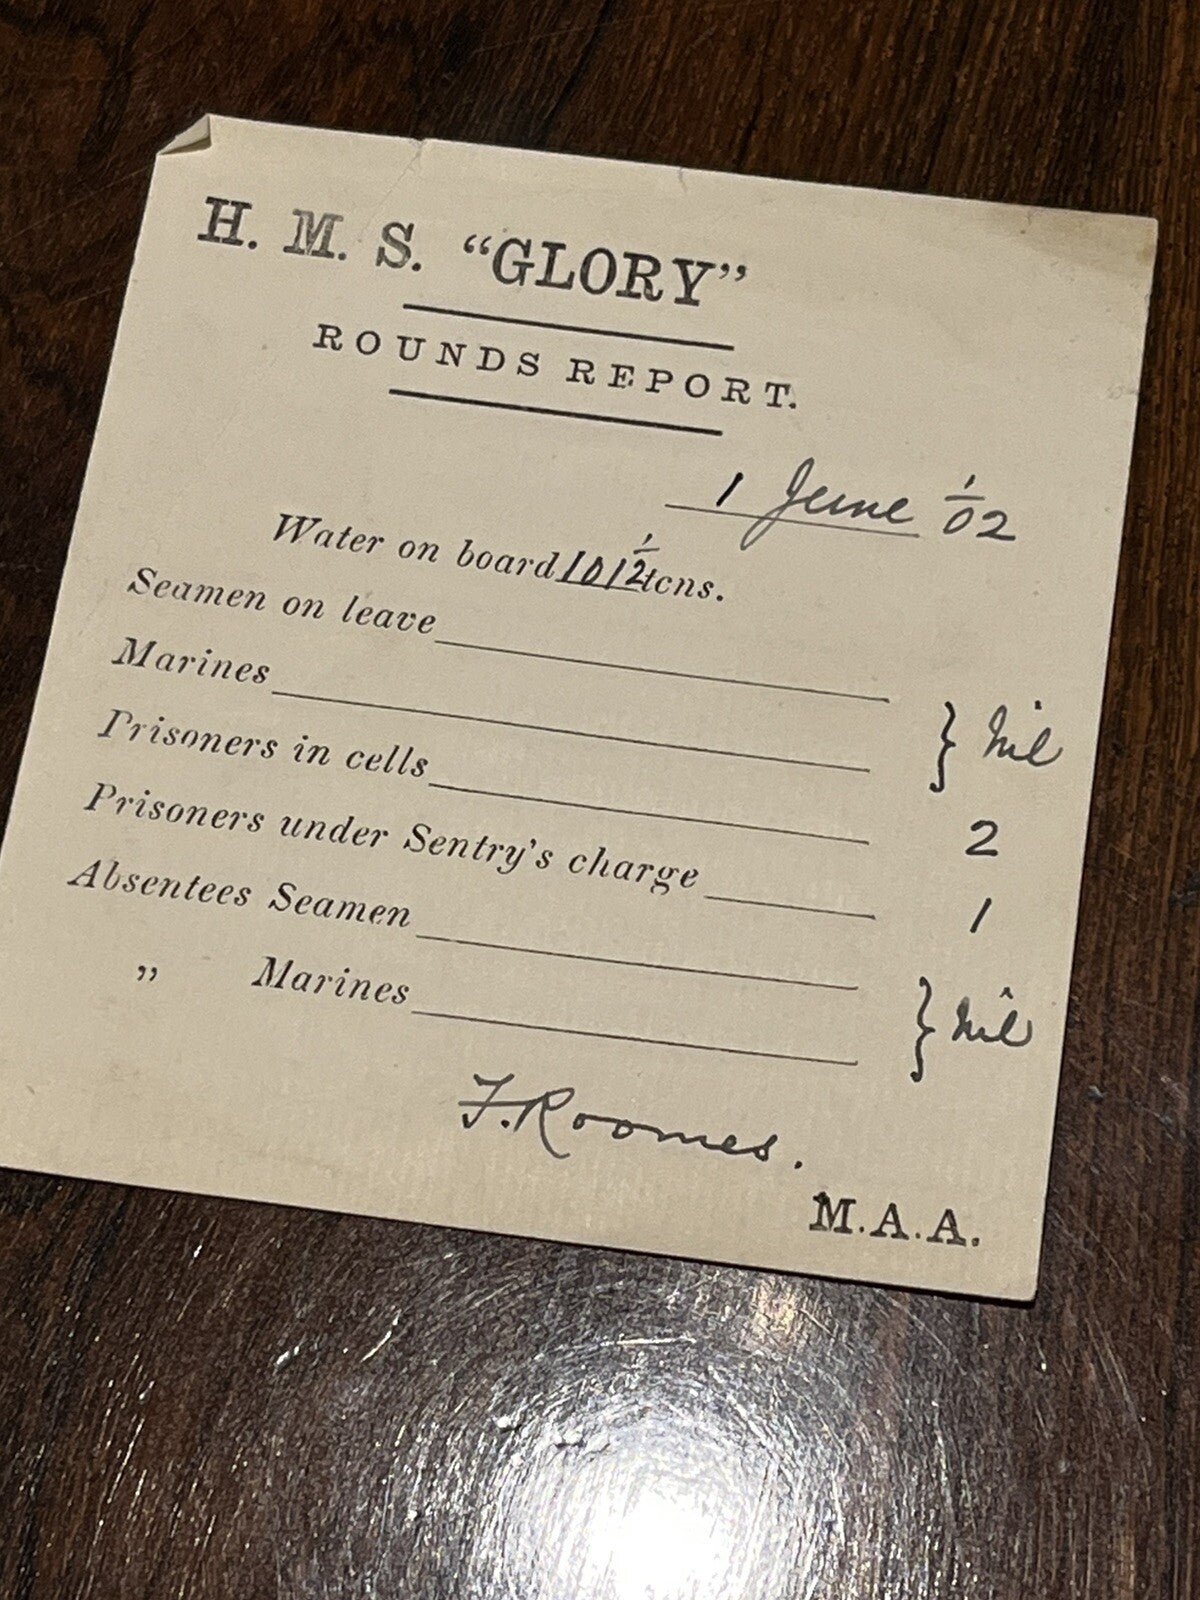 H. M. S. “GLORY”
ROUNDS REPORT.
1 June 1/02
Water on board 101½ tons.
Seamen on leave
Marines } Nil
Prisoners in cells 2
Prisoners under Sentry's charge 1
Absentees Seamen
„ Marines } Nil
F. Roomes.
M.A.A.